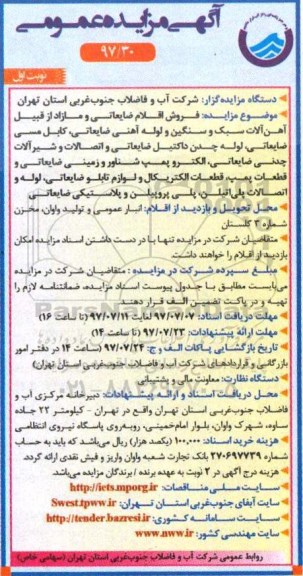 آگهی مزایده عمومی
۹۷/۳۰
نوبت اول
دستگاه مزایده‌گزار: شرکت آب و فاضلاب جنوب‌غربی استان تهران
موضوع مزایده: فروش اقلام ضایعاتی و مازاد از قبیل
آهن‌آلات سبک و سنگین و لوله آهنی ضایعاتی، کابل مسی
ضایعاتی، لوله چدن داکتیل ضایعاتی و اتصالات و شیرآلات
چدنی ضایعاتی، الکترو پمپ شناور و زمینی ضایعاتی و
قطعات پمپ، قطعات الکتریکال و لوازم تابلو ضایعاتی، لوله و
اتصالات پلی‌اتیلن، پلی پروپیلن و پلاستیکی ضایعاتی
محل تحویل و بازدید از اقلام: انبار عمومی و تولید واوان، مخزن
شماره ۳ گلستان
متقاضیان شرکت در مزایده تنها با در دست داشتن اسناد مزایده امکان
بازدید از اقلام را خواهند داشت.
مبلغ سپرده شرکت در مزایده: متقاضیان شرکت در مزایده
می‌بایست مطابق با جدول پیوست اسناد مزایده، ضمانتنامه لازم را
تهیه و در پاکت تضمین الف قرار دهند.
مهلت دریافت اسناد: ۹۷/۰۷/۰۷ لغایت ۹۷/۰۷/۱۱ (تا ساعت ۱۶)
مهلت ارائه پیشنهادات: ۹۷/۰۷/۲۳ (تا ساعت ۱۴)
تاریخ بازگشایی پاکات الف و ج: ۹۷/۰۷/۲۴ (ساعت ۱۴ در دفتر امور
بازرگانی و قراردادهای شرکت آب و فاضلاب جنوب‌غربی استان تهران)
دستگاه نظارت: معاونت مالی و پشتیبانی
محل دریافت اسناد و ارائه پیشنهادات: دبیرخانه مرکزی آب و
فاضلاب جنوب‌غربی استان تهران واقع در تهران - کیلومتر ۲۲ جاده
ساوه، شهرک واوان، بلوار امام‌خمینی، روبه‌روی پاسگاه نیروی انتظامی
هزینه خرید اسناد: ۱۰۰،۰۰۰ (یکصد هزار) ریال می‌باشد که باید به حساب
شماره ۲۷۰۶۹۷۷۳۹ بانک تجارت شعبه واوان واریز و فیش نقدی ارائه گردد.
هزینه درج آگهی در ۲ نوبت به عهده برنده / برندگان مزایده می‌باشد.
سایت ملی مناقصات: http://iets.mporg.ir
سایت آبفای جنوب‌غربی استان تهران: Swest.tpww.ir
سایت سامانه کشوری: http://tender.bazresi.ir
سایت مهندسی کشور: www.nww.ir
روابط عمومی شرکت آب و فاضلاب جنوب‌غربی استان تهران (سهامی خاص)